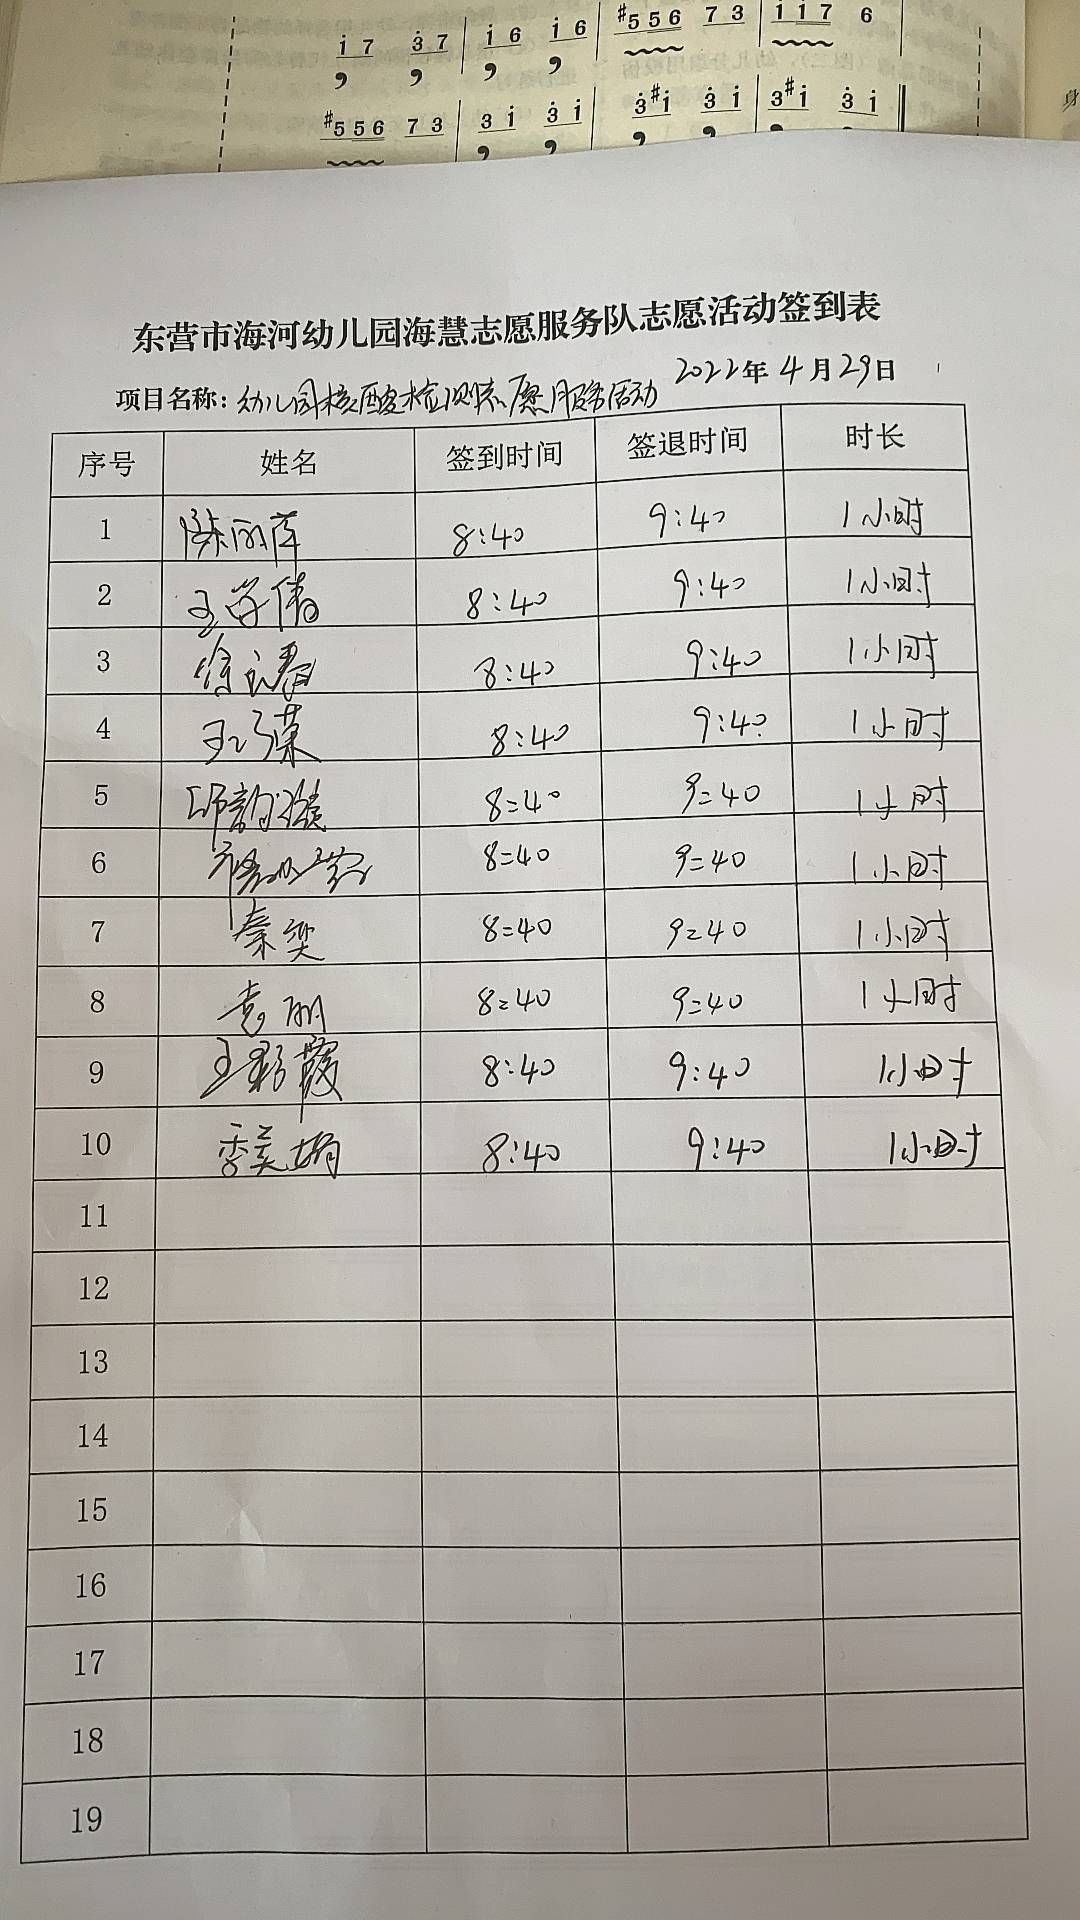 i 7 3 7 i 6 i 6 #5 5 6 7 3 i i 7 6
#5 5 6 7 3 3 i 3 i 3 #i 3 i 3 #i 3 i
身
东营市海河幼儿园海慧志愿服务队志愿活动签到表
项目名称: 幼儿园核酸检测志愿服务活动 2022年 4月29日
序号 姓名 签到时间 签退时间 时长
1 陈丽萍 8:40 9:40 1小时
2 8:40 9:40 1小时
3 8:40 9:40 1小时
4 8:40 9:40 1小时
5 8:40 9:40 1小时
6 8:40 9:40 1小时
7 秦奕 8:40 9:40 1小时
8 袁丽 8:40 9:40 1小时
9 王彩霞 8:40 9:40 1小时
10 季美娟 8:40 9:40 1小时
11
12
13
14
15
16
17
18
19